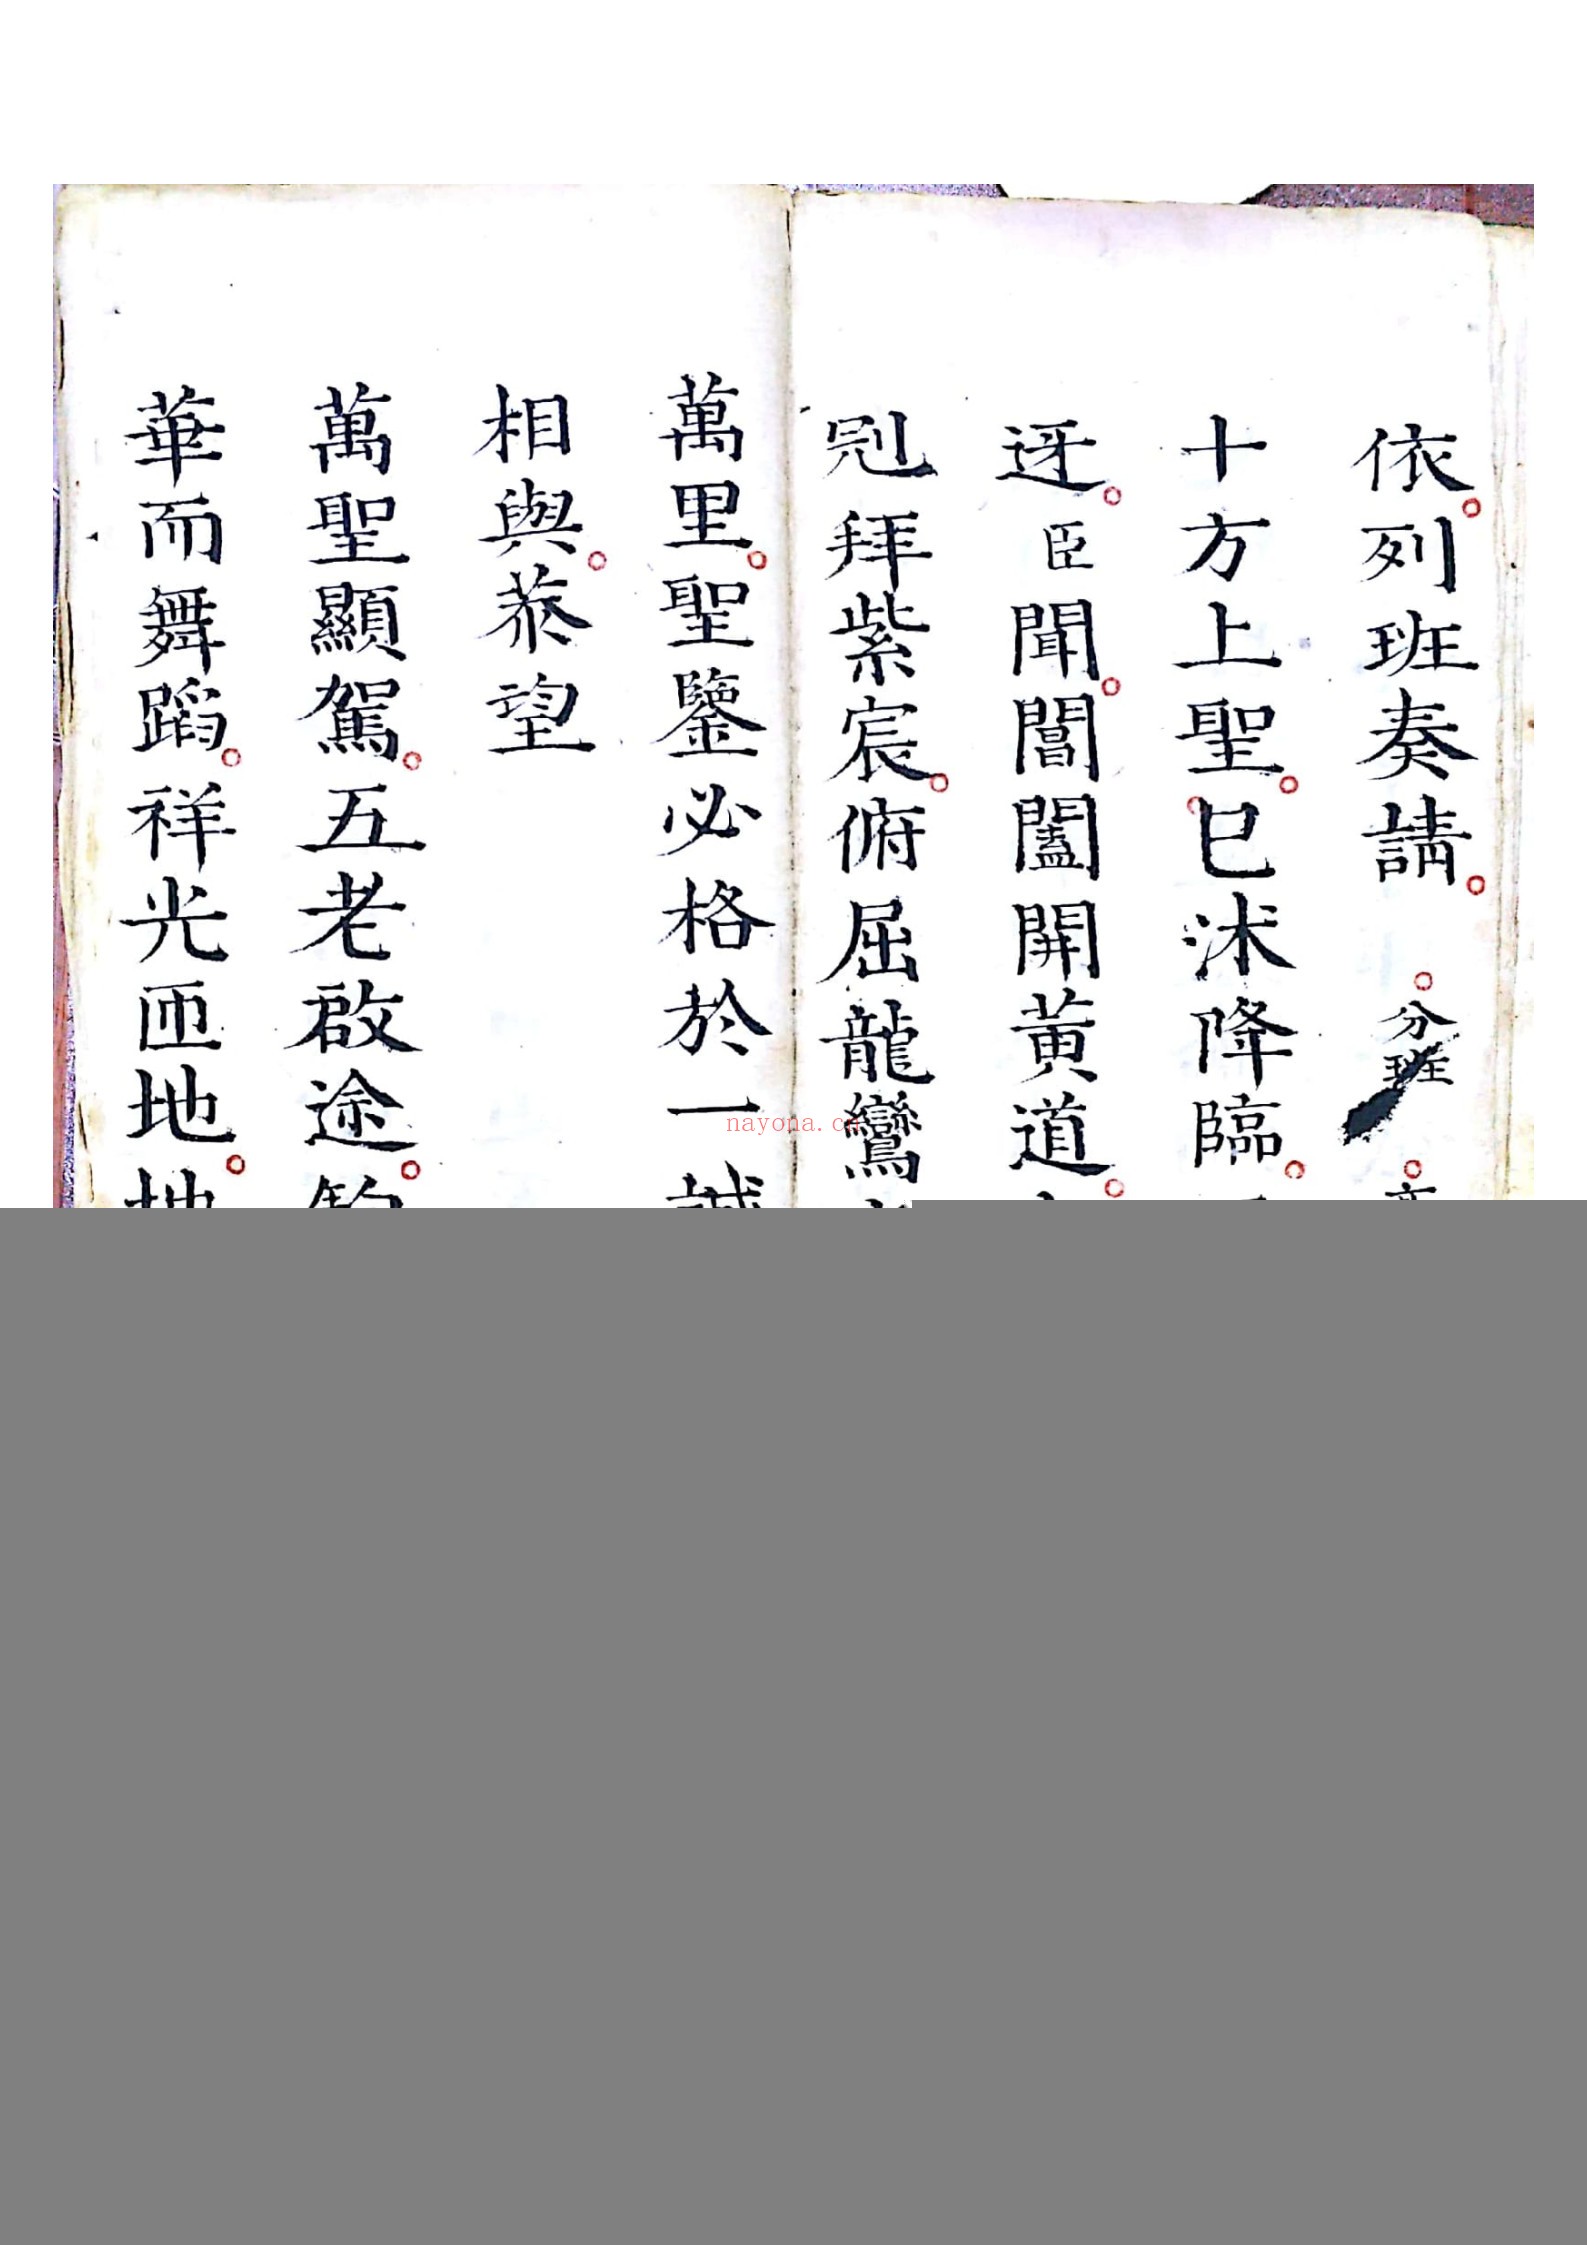 依。列班奏請。。分班。
十方上聖。。巳沭降臨。
迓。臣聞。閶闔開黄道。
剋拜紫宸。俯屈龍鸞
萬里。聖鑒必格於一誠
相與。恭望
萬聖顯駕。五老啟途。
華而舞蹈。祥光匝地。地
nayona.cn